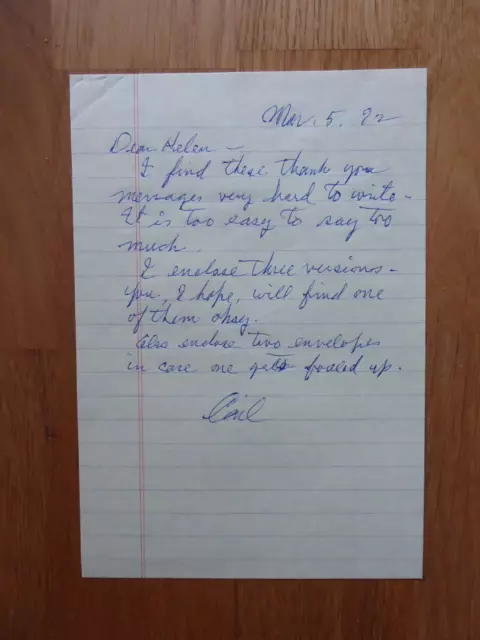 Mar. 5. 92
Dear Helen -
I find these thank you
messages very hard to write -
It is too easy to say too
much.
I enclose three versions -
you, I hope, will find one
of them okay.
Also enclose two envelopes
in case one gets fouled up.